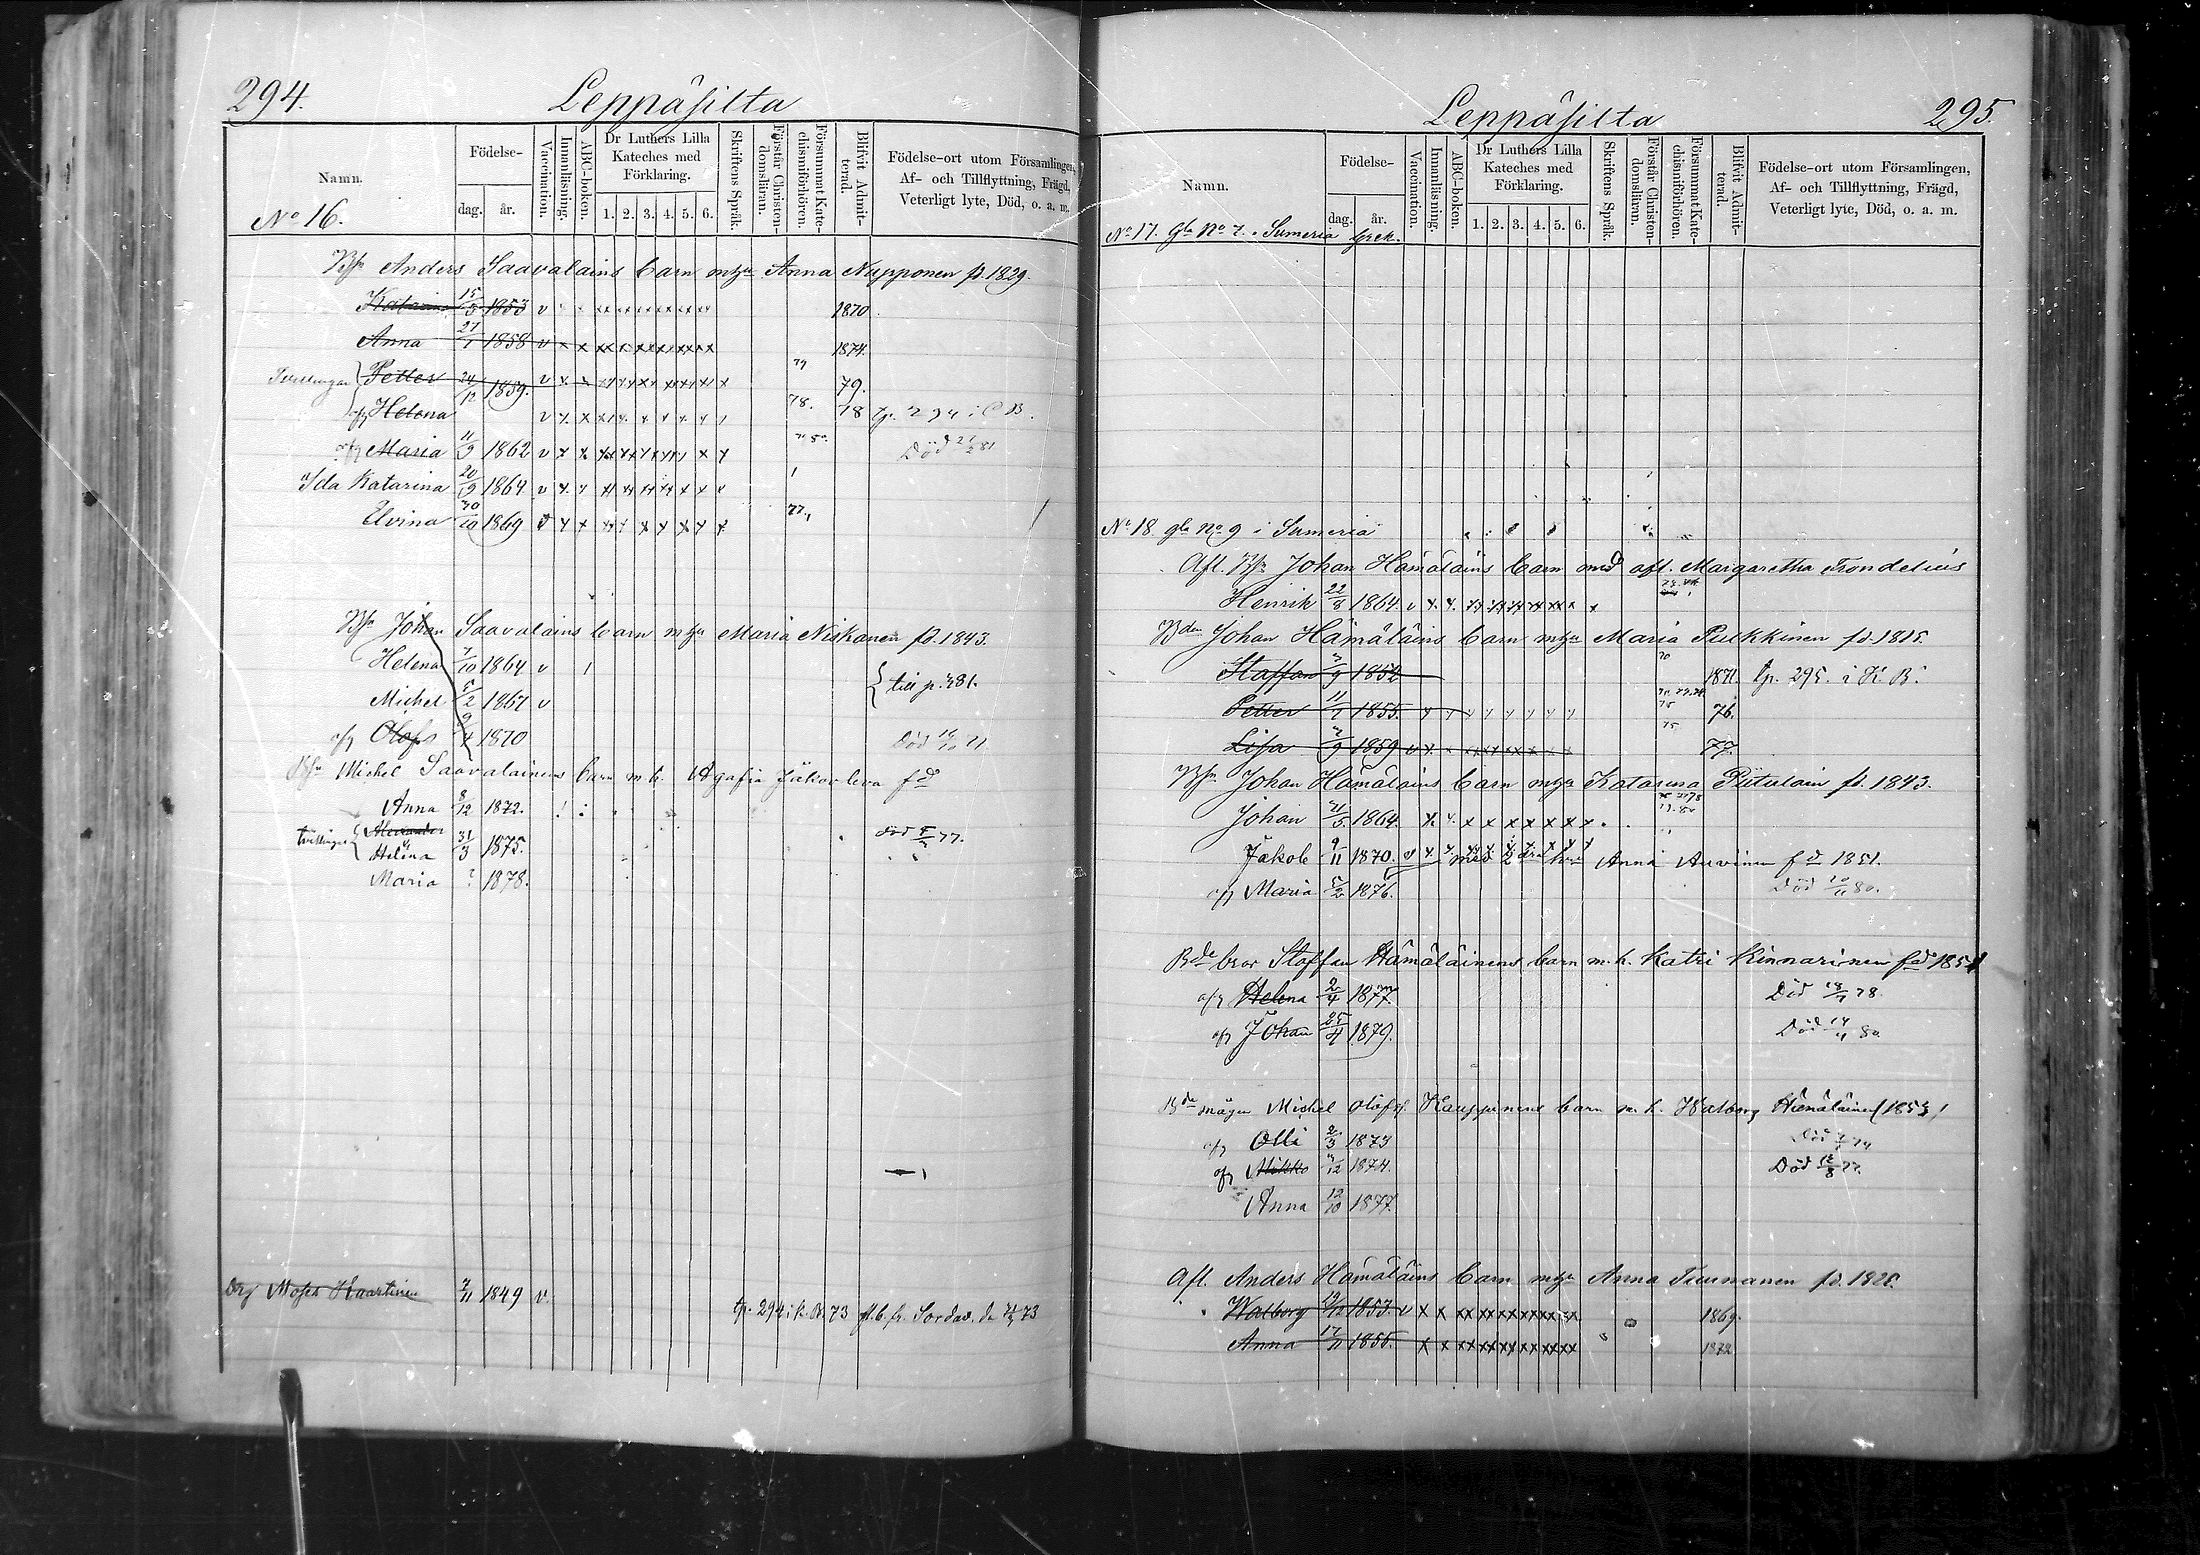 294.
Leppäsilta
Namn.
Födelse-
dag.
år.
Vaccination.
Innanläsning.
ABC-boken.
Dr Luthers Lilla
Kateches med
Förklaring.
1. 2. 3. 4. 5. 6.
Skriftens Språk.
Förstår Christen-
domsläran.
Försummat Kate-
chismiförhören.
Blifvit Admit-
terad.
Födelse-ort utom Församlingen,
Af- och Tillflyttning, Frägd,
Veterligt lyte, Död, o. a. m.
No 16.
Anders Saavalains barn Anna Nupponen fd. 1829.
Katarina 15/5 1853 v 1870
Anna 27/1 1858 v x x 1874.
Tvillingar Petter 24/12 1859. v x 79 79.
Helena v x x 78. 78 tp. 294 i C B.
Maria 11/9 1862 v x x Död 21/2 81
Ida Katarina 20/9 1864 v x x
Elvina 30/10 1869 x x 77.
Johan Saavalains barn Maria Niskanen fd. 1843.
Helena 7/10 1864 v
Michel 5/2 1867 v till p. 481.
Olof 9/4 1870 Död 71
Michel Saavalainens barn m. h. Agafia fd
Anna 8/12 1872.
tvillingar Alexander 31/3 1875. död 77.
Helena
Maria ? 1878.
Drg Moses Kaartinen 7/11 1849 v.
tp. 294 i K. B. 73 fl. b. fr. Sordav. 73
Leppäsilta
295.
Namn.
Födelse-
dag.
år.
Vaccination.
Innanläsning.
ABC-boken.
Dr Luthers Lilla
Kateches med
Förklaring.
1. 2. 3. 4. 5. 6.
Skriftens Språk.
Förstår Christen-
domsläran.
Försummat Kate-
chismiförhören.
Blifvit Admit-
terad.
Födelse-ort utom Församlingen,
Af- och Tillflyttning, Frägd,
Veterligt lyte, Död, o. a. m.
No 17. gla No 7. i Sumeria grek.
No 18. gla No 9 i Sumeria
Afl. Johan Hämäläins barn med afl. Margaretha Frondelius
Henrik 22/8 1864. v x. x.
Johan Hämäläins barn Maria Pulkkinen fd. 1815.
Staffan 3/9 1852 1871. tp. 295. i K. B.
Petter 11/7 1855. 76.
Lisa 2/9 1859 77.
Johan Hämäläins barn Katarina Piitulain fd. 1843.
Johan 21/5 1864.
Jakob 9/11 1870. med 2dra Anna Auvinen fd 1851.
Maria 5/2 1876. Död 80.
Bde bror Staffan Hämäläinens barn m. h. Katri Kinnarinen fd 1851
Helena 2/4 1877. Död 18/7 78.
Johan 25/4 1879. Död 80
Bde mågen Michel Olofs. Kauppinens barn m. h. Walborg Hämäläinen (1853)
Olli 2/3 1873 Död 74
Mikko 12 1874. Död 77.
Anna 12/10 1877.
Afl. Anders Hämäläins barn Anna Tuunanen fd. 1825.
Walborg 1853. v x x 1869.
Anna 17/11 1855. x x 1872